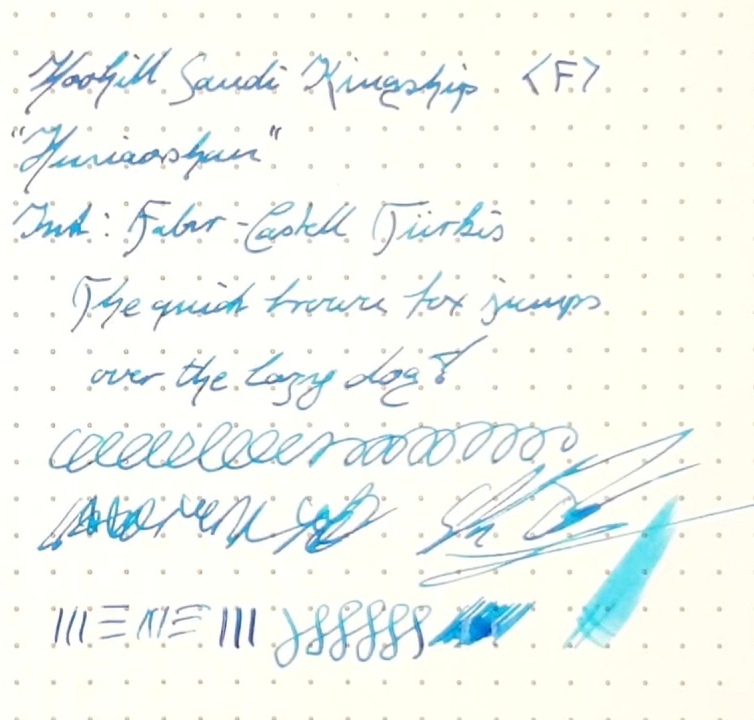 Moohill Saudi Kingship <F>
"Huniaoshan"
Ink: Faber-Castell Türkis
The quick brown fox jumps
over the lazy dog!